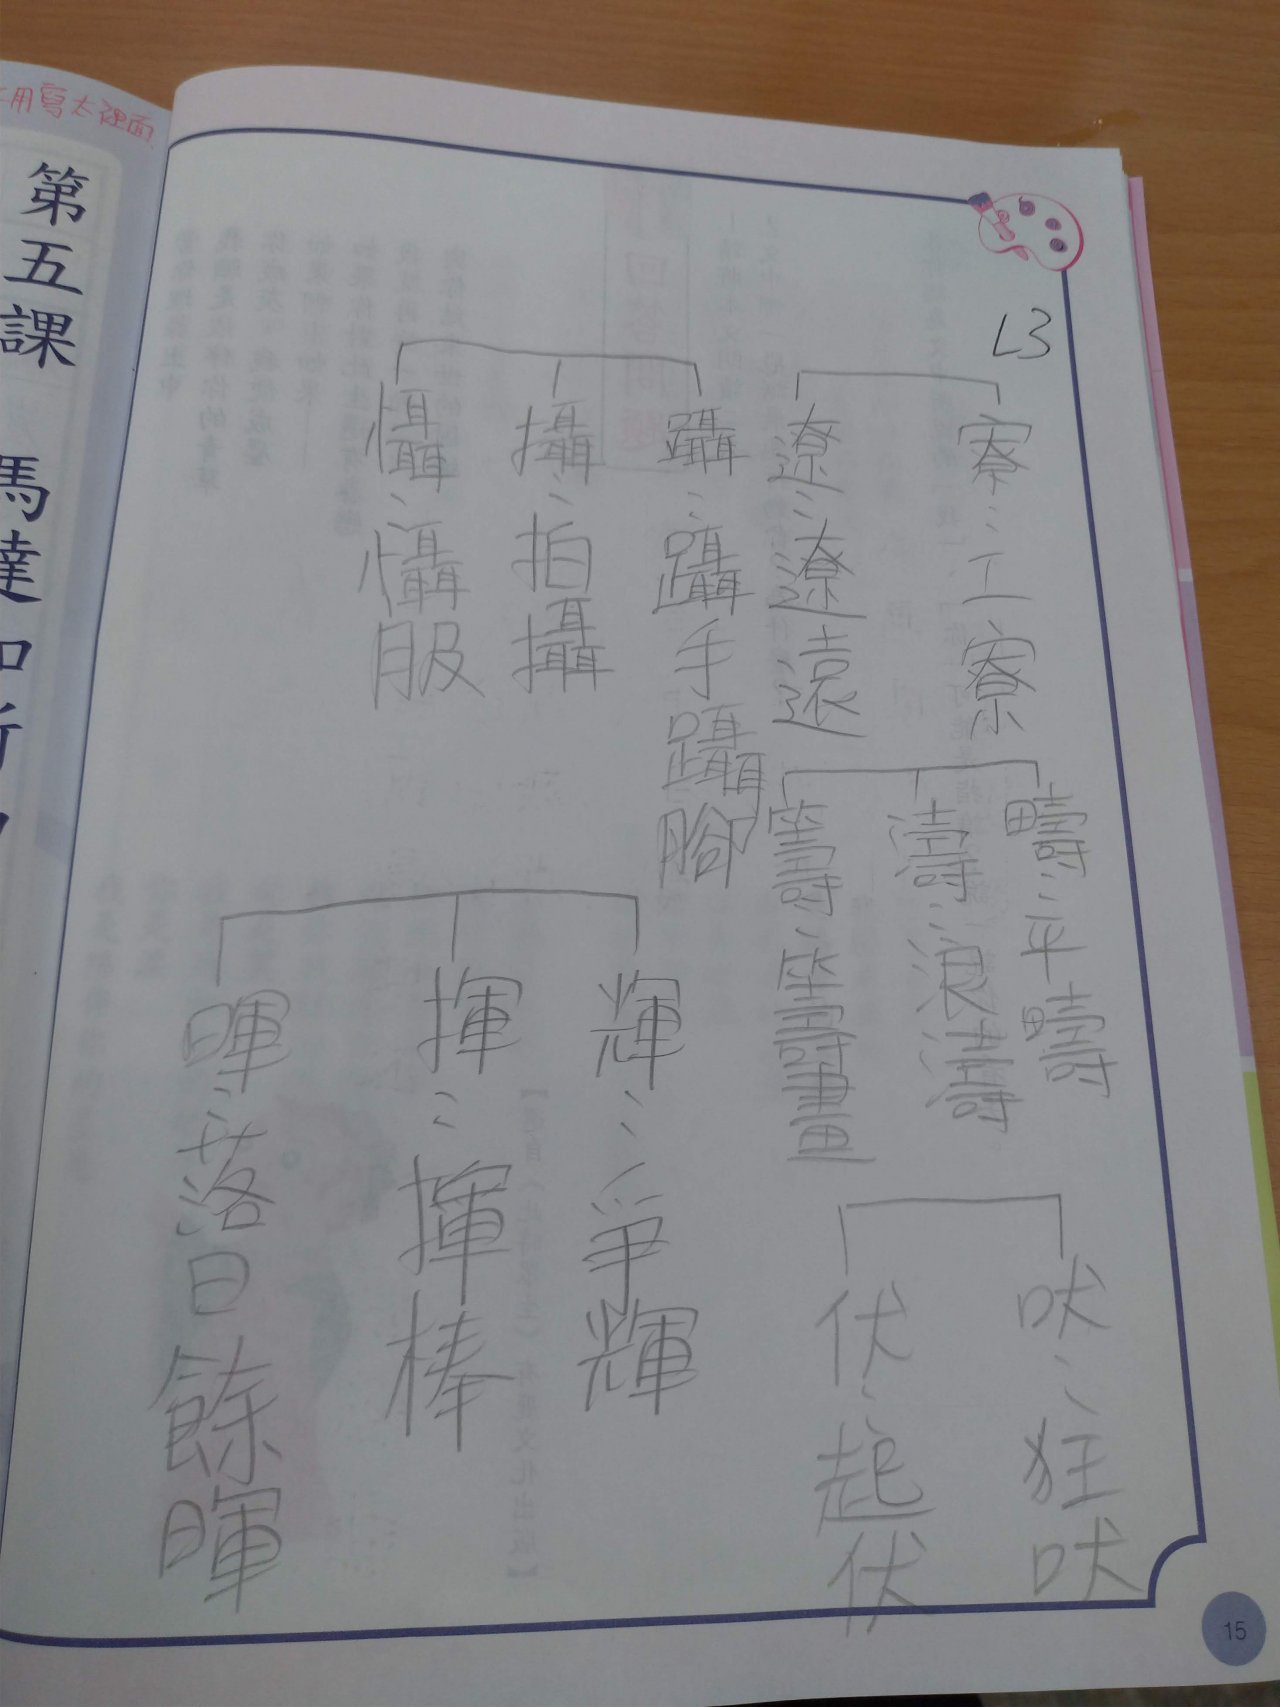 L3
寮：工寮
遼：遼遠
疇：平疇
濤：浪濤
籌：籌畫
吠：狂吠
伏：起伏
躡：躡手躡腳
攝：拍攝
懾：懾服
輝：爭輝
揮：揮棒
暉：落日餘暉
15
用寫太裡面
第五課